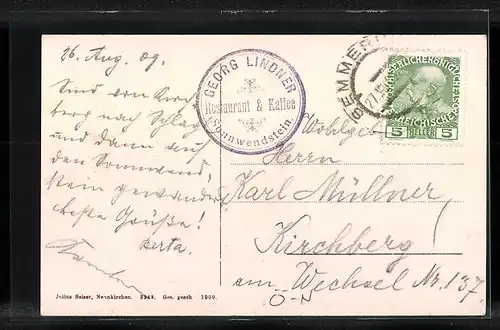 26. Aug. 09.
Sind von Kirch
berg nach Schlag
und dann auf
den Sonnwend,
stein gewandert
beste Grüße!
Berta.
GEORG LINDNER
Restaurant & Kaffee
Sonnwendstein.
SEMMERI
27
KAISERLICHE KÖNIGLICHE
ÖSTERREICHISCHE POST
5 HELLER 5
Wohlgeb
Herrn
Karl Müllner
Kirchberg
am Wechsel Nr. 137.
Ö-N
Julius Seiser, Neunkirchen. 9249. Ges. gesch 1909.